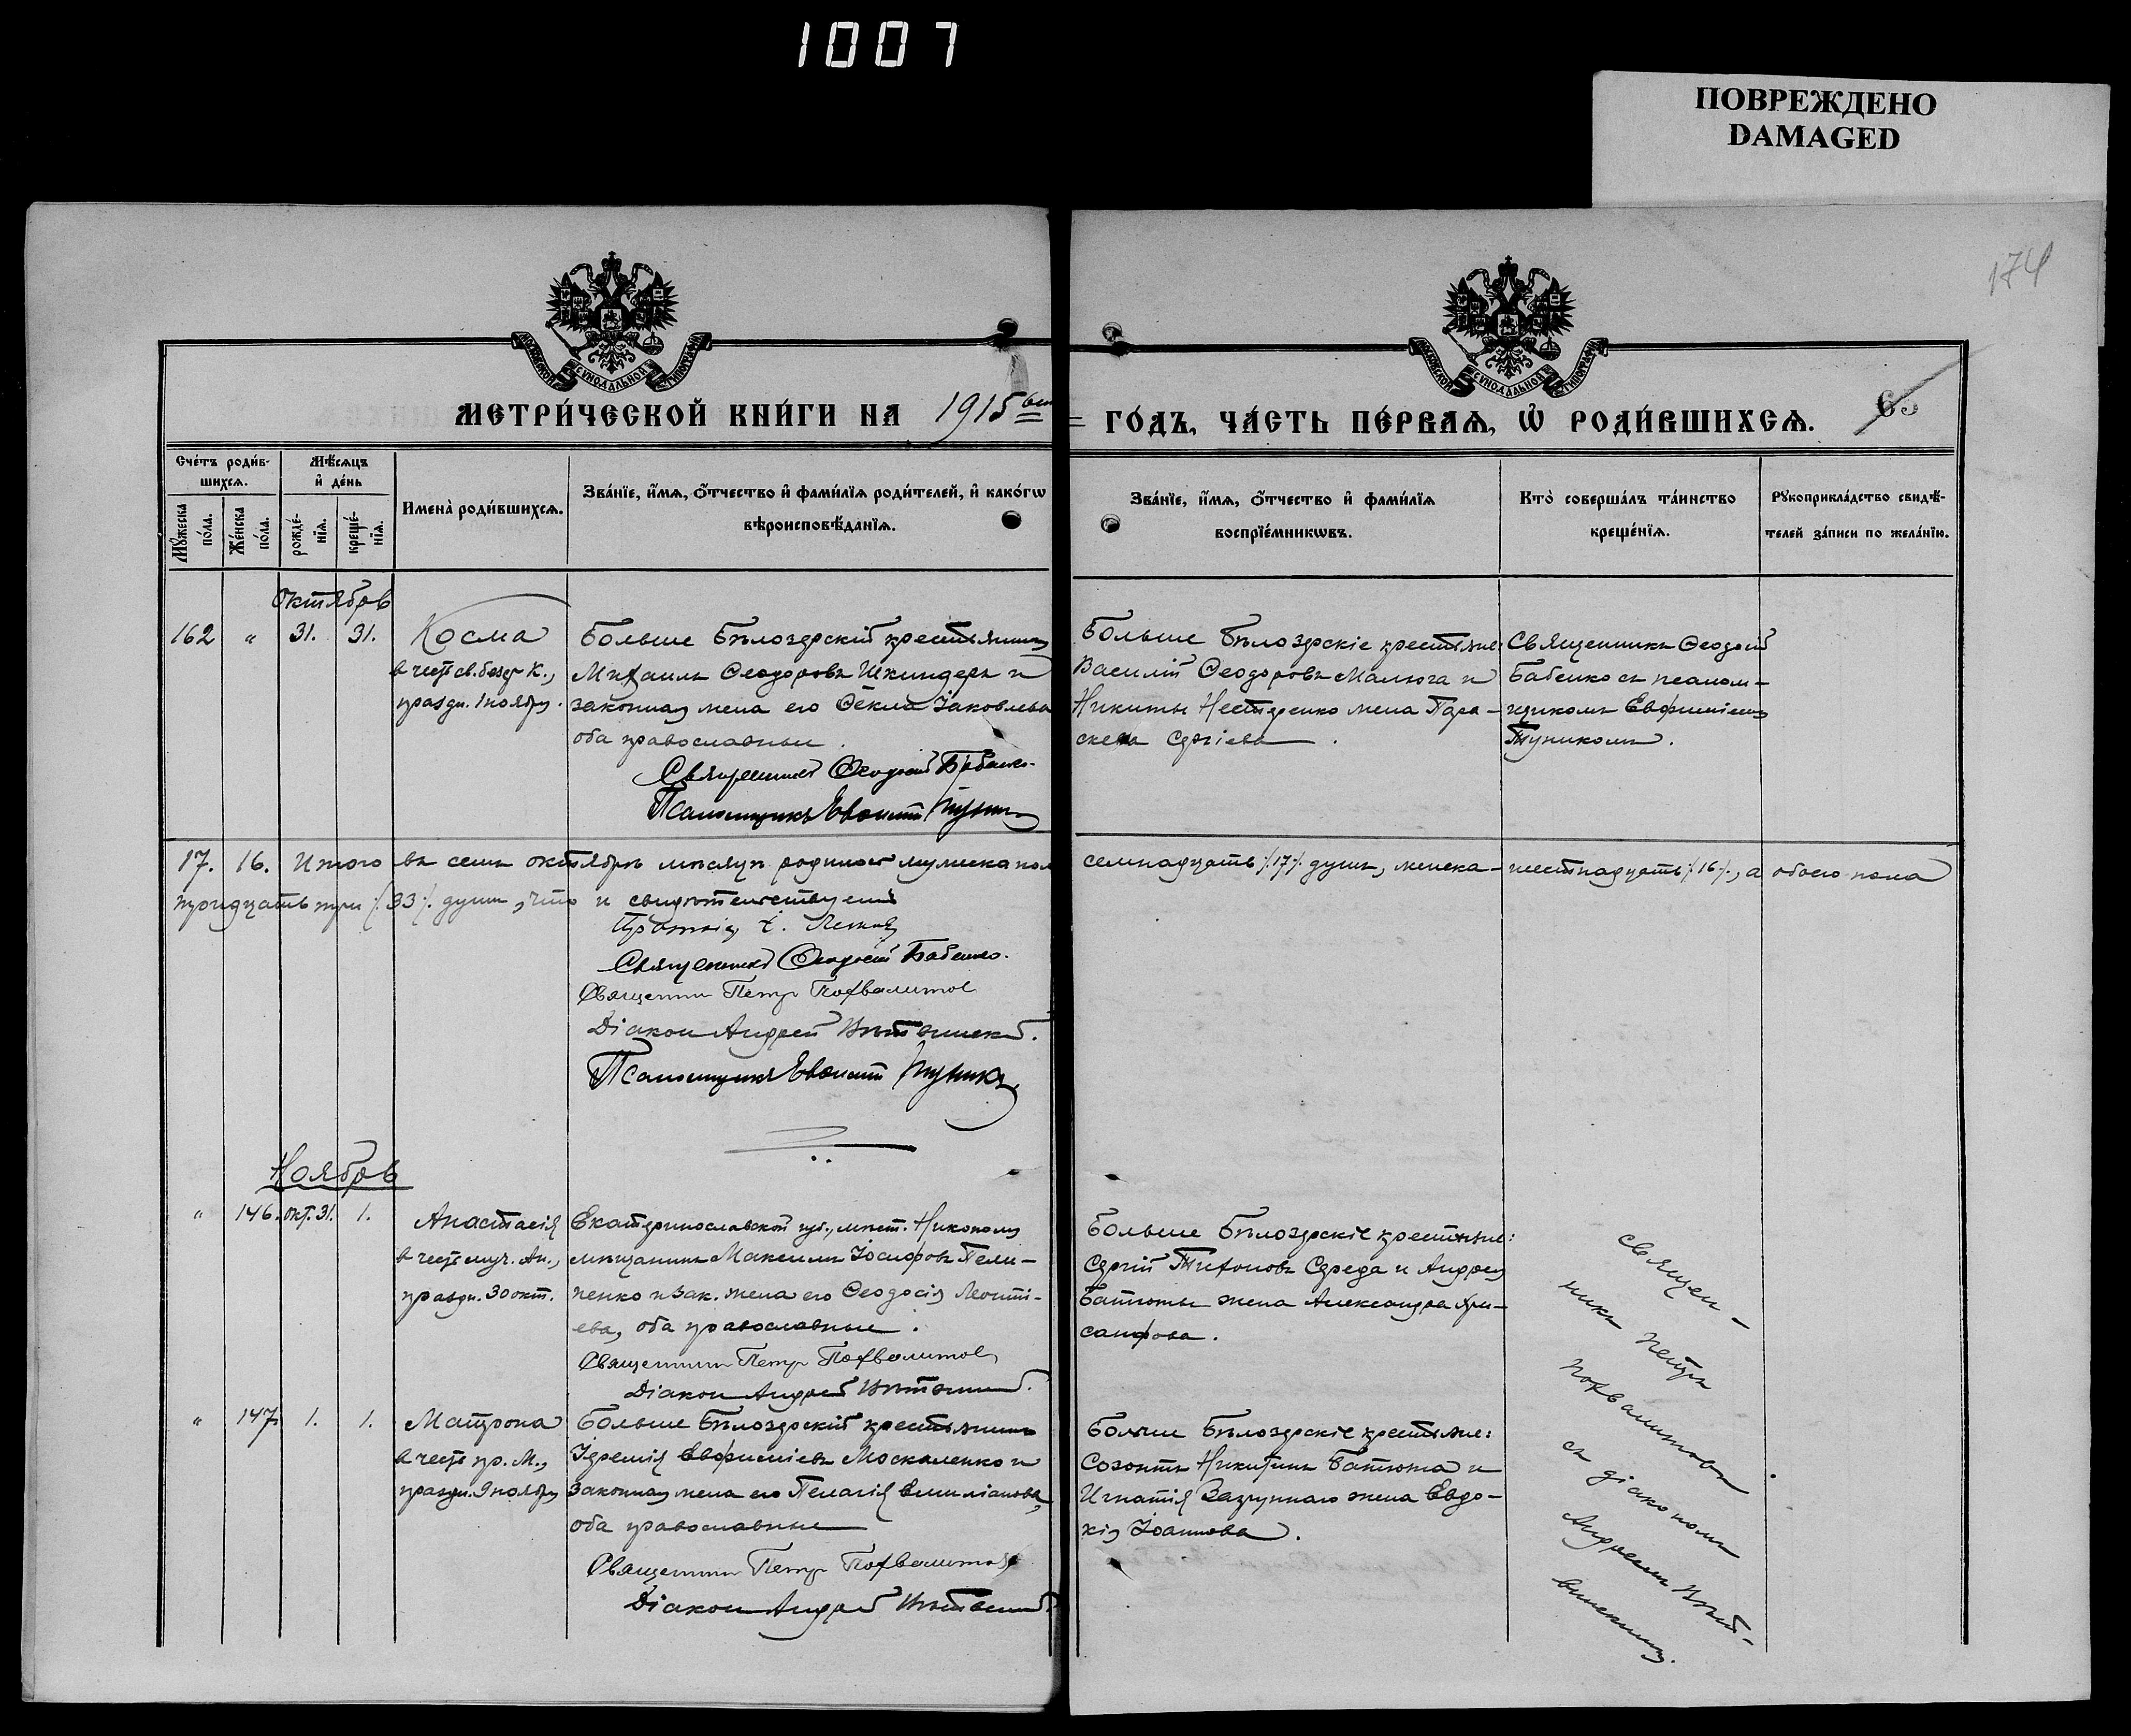 1007
ПОВРЕЖДЕНО
DAMAGED
174
МОСКОВСКОЙ СУНОДАЛЬНОЙ ТИПОГРАФІИ
МОСКОВСКОЙ СУНОДАЛЬНОЙ ТИПОГРАФІИ
МЕТРИ́ЧЕСКОЙ КНИ́ГИ НА 1915
ГО́ДЪ, ЧА́СТЬ ПЕ́РВАѦ, Ѽ РОДИ́ВШИХСѦ.
63
Сче́тъ роди́в-
шихсѧ.
Мꙋ́жеска
по́ла.
Же́нска
по́ла.
Мѣ́сѧцъ
и҆ де́нь
рожде́-
нїѧ.
креще́-
нїѧ.
Имена̀ роди́вшихсѧ.
Зва́нїе, и҆́мѧ, ѻ҆́тчество и҆ фами́лїѧ роди́телей, и҆ како́гѡ
вѣроисповѣ́данїѧ.
Зва́нїе, и҆́мѧ, ѻ҆́тчество и҆ фами́лїѧ
воспрїе́мникѡвъ.
Кто̀ соверша́лъ та́инство
креще́нїѧ.
Рꙋкоприкла́дство свидѣ́-
телей за́писи по жела́нїю.
Октябрь
162 " 31. 31.
Косма
в честь св. безср К.,
праздн. 1 ноября.
Больше Бѣлозерскій крестьянинъ
Михаилъ Ѳеодоровъ Шкиндеръ и
законная жена его Ѳекла Іаковлева
оба православные.
Священникъ Ѳеодосій Бабенко.
Псаломщикъ Евѳимій Тупикъ
Больше Бѣлозерскіе крестьяне:
Василій Ѳеодоровъ Малюга и
Никиты Нестеренко жена Пара-
скева Сергіева.
Священникъ Ѳеодосій
Бабенко съ псалом-
щикомъ Евфиміемъ
Тупикомъ.
17. 16. Итого въ семъ октябрѣ мѣсяцѣ родилось мужеска пол
семнадцать /.17/. душъ, женска- шестнадцать /.16/., а обоего пола
тридцать три /.33/. души, что и свидѣтельствуемъ
Священникъ Ѳеодосій Бабенко.
Священникъ Петръ Похвалитовъ
Діаконъ Андрей Вѣтвинскій.
Псаломщикъ Евѳимій Тупикъ
Ноябрь
" 146. окт. 31. 1.
Анастасія
в честь муч. Ан.,
праздн. 30 окт.
Екатеринославской губ., мѣст. Никополя
мѣщанинъ Максимъ Іосифовъ Пели-
пенко и зак. жена его Ѳеодосія Леонті-
ева, оба православные.
Священникъ Петръ Похвалитовъ
Діаконъ Андрей Вѣтвинскій.
Больше Бѣлозерскіе крестьяне:
Сергій Тихоновъ Середа и Андрея
Батюты жена Александра Хри-
санфова.
" 147 1. 1.
Матрона
в честь пр. М.,
праздн. 9 ноября
Больше Бѣлозерскій крестьянинъ
Іеремія Евфиміевъ Москаленко и
законная жена его Пелагія Емиліанова,
оба православные
Священникъ Петръ Похвалитовъ
Діаконъ Андрей Вѣтвинскій.
Больше Бѣлозерскіе крестьяне:
Созонтъ Никитинъ Батюта и
Игнатія Загрупнаго жена Евдо-
кія Іоаннова.
Священ-
никъ Петръ
Похвалитовъ
съ діакономъ
Андреемъ Вѣт-
винскимъ.